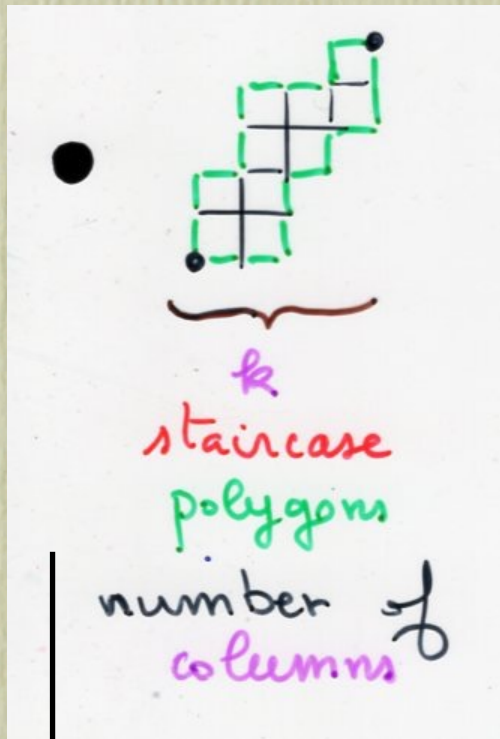 k
staircase
polygons
number of
columns